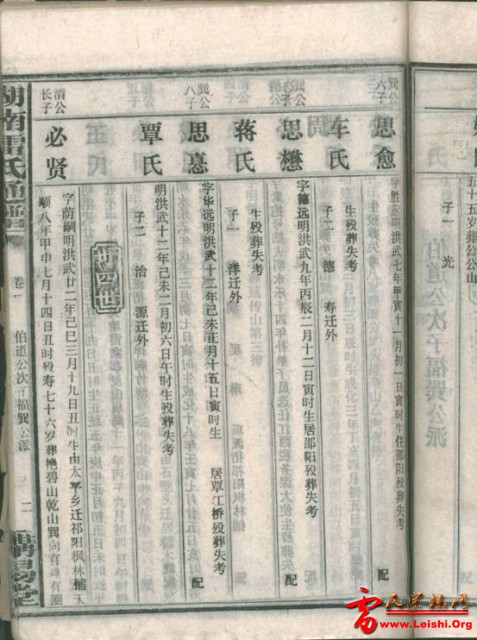 五十五岁葬公公山
子一 光
巽公
六子
思愈
远明洪武七年甲寅十一月初一日寅时生住邵阳殁葬失考 配
车氏
生殁葬失考
子二 德 寿迁外
巽公
思懋
字德远明洪武九年丙辰二月十二日寅时生居邵阳殁葬失考 配
蒋氏
生殁葬失考
子一 祥迁外
巽公
八子
思
字华远明洪武十二年己未正月十五日寅时生 居覃江桥殁葬失考 配
覃氏
明洪武十二年己未二月初六日午时生殁葬失考
子二 治 源迁外
第四世
清公
长子
必贤
字荫嗣明洪武廿二年己巳三月十九日丑时生由太平乡迁祁阳枫林铺天
顺八年甲申七月十四日丑时殁寿七十六岁葬艳碧山乾山巽向有
湖南雷氏通谱 卷一 伯道公次子福巽公派 二
雷氏宗亲网
www.Leishi.Org